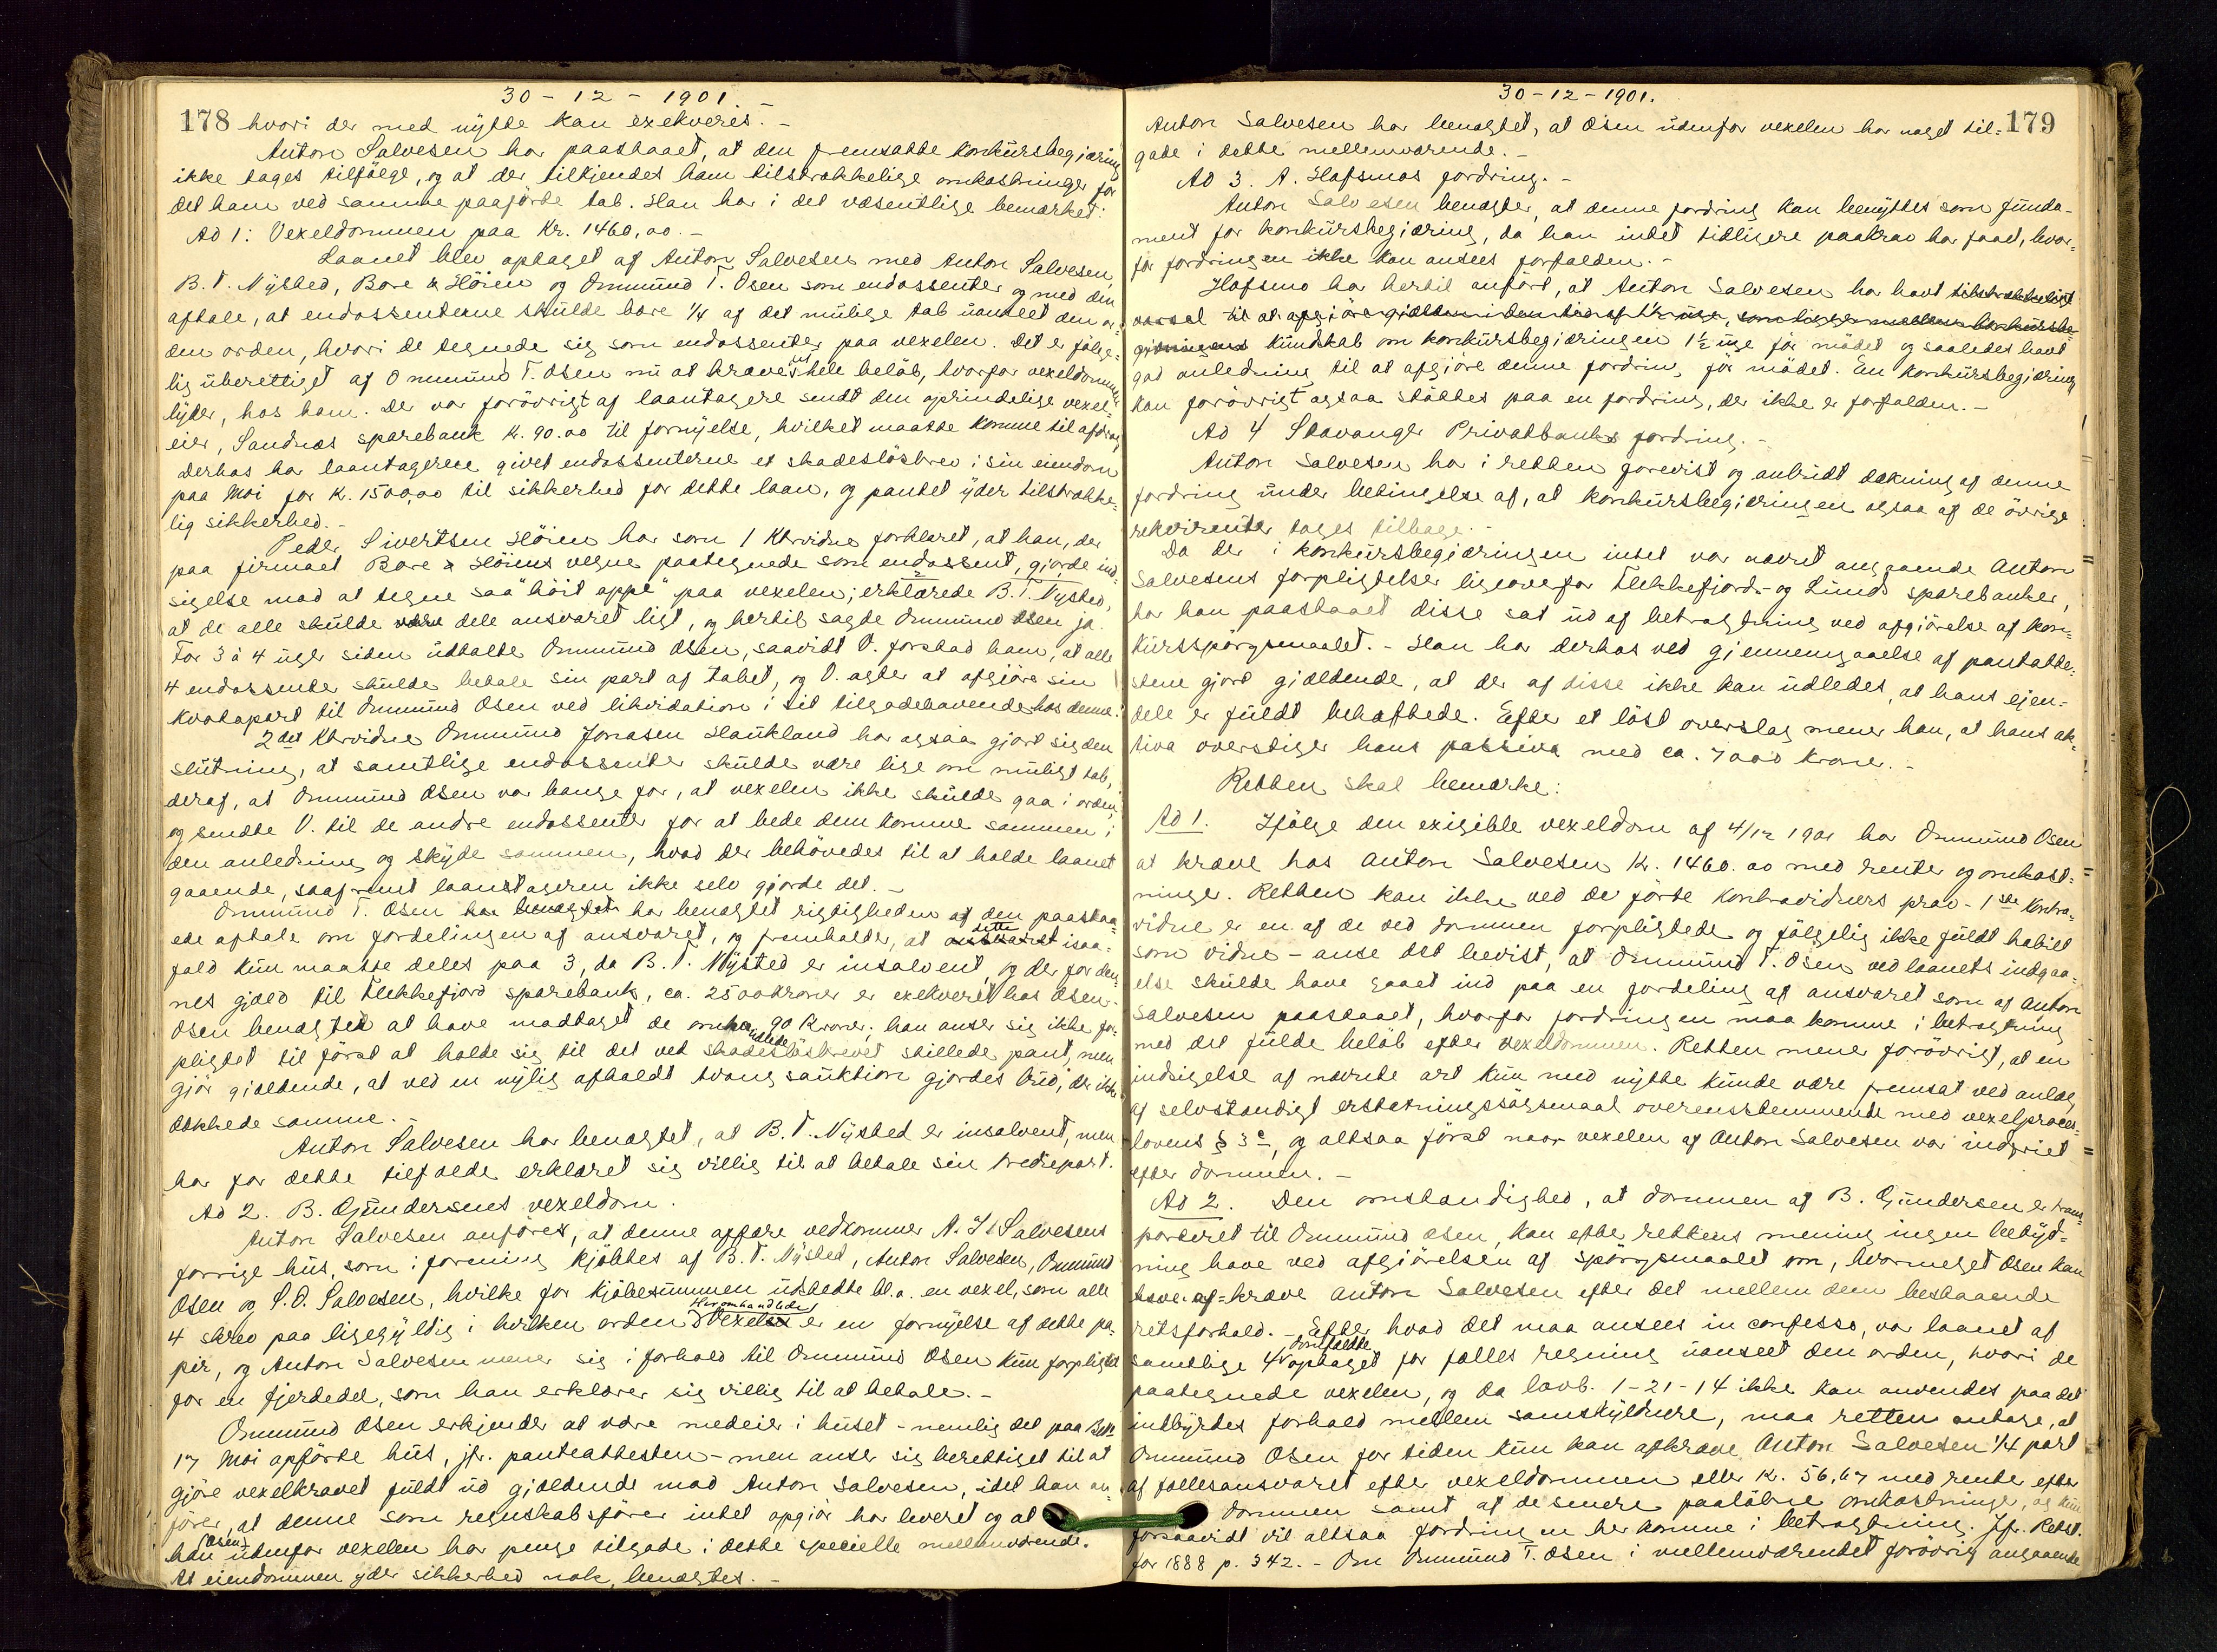 30-12-1901.-
178 hvori der med nytte kan exekveres.-
Anton Salvesen har paastaaet, at den fremsatte konkursbegjæring
ikke tages tilfölge, og at der tilkjendes ham tilstrækkelige omkostninger for
det ham ved samme paaförte tab. Han har i det væsentlige bemærket:
Ad 1: Vexeldommen paa Kr. 1460,00.-
Laanet blev optaget af Anton Salvesen med Anton Salvesen,
B. T. Nysted, Bore & Höien og Ommund T. Osen som endossenter og med den
aftale, at endossenterne skulde bære 1/4 af det mulige tab uanseet den or-
den orden, hvori de tegnede sig som endossenter paa vexelen. Det er fölge-
lig uberettiget af Ommund T. Osen nu at kræve det hele belöb, hvorfor vexeldommen
lyder, hos ham. Der var forövrigt af laantagere sendt den oprindelige vexel-
eier, Sandnæs sparebank K. 90.00 til fornyelse, hvilket maatte komme til afdrag,
Derhos har laantageren givet endossenterne et skadeslösbrev i sin eiendom
paa Moi for K. 1500,00 til sikkerhed for dette laan, og pantet yder tilstrække-
lig sikkerhed.-
Peder Sivertsen Höien har som 1 Ktrvidne forklaret, at han, der
paa firmaet Bore & Höiens vegne paategnede som endossent, gjorde ind-
sigelse mod at tegne saa "höit oppe" paa vexelen; erklærede B. T. Nysted,
at de alle skulde være dele ansvaret ligt, og hertil sagde Ommund Osen ja.
For 3 à 4 uger siden udtalte Ommund Osen, saavidt V. forstod ham, at alle
4 endossenter skulde betale sin part af tabet, og V. agter at afgjöre sin
kvotapart til Ommund Osen ved likvidation i sit tilgodehavende hos denne.
2det Ktrvidne Ommund Jonasen Haukland har ogsaa gjort sig den
slutning, at samtlige endossenter skulde være lige om muligt tab,
deraf, at Ommund Osen var bange for, at vexelen ikke skulde gaa i orden,
og sendte V. til de andre endossenter for at bede dem komme sammen i
den anledning og skyde sammen, hvad der behövedes til at holde laanet
gaaende, saafremt laanstageren ikke selv gjorde det.-
Ommund T. Osen har benægtet har benægtet rigtigheden af den paastaa-
ede aftale om fordelingen af ansvaret, og fremholder, at ansvaret dette isaa-
fald kun maatte deles paa 3, da B. T. Nysted er insolvent, og der for den-
nes gjæld til Flekkefjord sparebank, ca. 2500 kroner er exekveret hos Osen.
Osen benægter at have modtaget de omhandlede 90 Kroner; han anser sig ikke for-
pligtet til först at holde sig til det ved skadeslösbrevet stillede pant, men
gjör gjældende, at ved en nylig afholdt tvangsauktion gjordes bud, der ikke
dækkede samme.-
Anton Salvesen har benægtet, at B. T. Nysted er insolvent, men
har for dette tilfælde erklæret sig villig til at betale sin trediepart.
Ad 2. B. Gundersens vexeldom.
Anton Salvesen anförer, at denne affære vedkommer A. T. Salvesens
forrige hus, som i forening kjöbtes af B. T. Nysted, Anton Salvesen, Ommund
Osen og S. O. Salvesen, hvilke for kjöbesummen udstedte bl. a. en vexel, som alle
4 skrev paa ligegyldig i hvilken orden. Heromhandlede Vexel er en fornyelse af dette pa-
pir, og Anton Salvesen mener sig i forhold til Ommund Osen kun forpligtet
for en fjerdedel, som han erklærer sig villig til at betale.-
Ommund Osen erkjender at være medeier i huset - nemlig det paa Bno
17 Moi opförte hus, jfr. panteattesten - men anser sig berettiget til at
gjöre vexelkravet fuldt ud gjældende mod Anton Salvesen, idet han an-
förer, at denne som regnskabsförer intet opgjör har leveret og at
han Osen udenfor vexelen har penge tilgode i dette specielle mellemværende.
At eiendommen yder sikkerhed nok, benægtes.-
30-12-1901.
179
Anton Salvesen har benægtet, at Osen udenfor vexelen har noget til-
gode i dette mellemværende.-
Ad 3. A. Hafsmos fordring.-
Anton Salvesen benægter, at denne fordring kan benyttes som funda-
ment for konkursbegjæring, da han intet tidligere paakrav har faaet, hvor-
for fordringen ikke kan ansees forfalden.-
Hafsmo har hertil anfört, at Anton Salvesen har havt tilstrækkeligt
varsel til at afgjöre gjælden i den tid af 1 1/2 uge, som ligger mellem konkursbe-
gjæringens kundskab om konkursbegjæringen 1 1/2 uge för mödet og saaledes havt
god anledning til at afgjöre denne fordring för mödet. En konkursbegjæring
kan forövrigt ogsaa stöttes paa en fordring, der ikke er forfalden.-
Ad 4 Stavanger Privatbanks fordring.-
Anton Salvesen har i retten forevist og anbudt dækning af denne
fordring under betingelse af, at konkursbegjæringen ogsaa af de övrige
rekvirenter tages tilbage.-
Da der i konkursbegjæringen intet var nævnt angaaende Anton
Salvesens forpligtelser ligeoverfor Flekkefjords- og Lunds sparebanker,
har han paastaaet disse sat ud af betragtning ved afgjörelse af kon-
kursspörgsmaalet.- Han har derhos ved gjennemgaaelse af pantatte-
stene gjort gjældende, at der af disse ikke kan udledes, at hans ejen-
dele er fuldt behæftede. Efter et löst overslag mener han, at hans ak-
tiva overstiger hans passiva med ca. 7000 kroner.-
Retten skal bemærke:
Ad 1. Ifölge den exigible vexeldom af 4/12 1901 har Ommund Osen
at kræve hos Anton Salvesen Kr. 1460.00 med rente og omkost-
ninger. Retten kan ikke ved de förte kontravidners prov - 1ste kontra-
vidne er en af de ved dommen forpligtede og fölgelig ikke fuldt habilt
som vidne - anse det bevist, at Ommund T. Osen ved laanets indgaa-
else skulde have gaaet ind paa en fordeling af ansvaret som af Anton
Salvesen paastaaet, hvorfor fordringen maa komme i betragtning
med det fulde belöb efter vexeldommen. Retten mener forövrigt, at en
indsigelse af nævnte art kun med nytte kunde være fremsat ved anlæg
af selvstændigt erstatningssögsmaal overensstemmende med vexelproces-
lovens § 3c, og altsaa först naar vexelen af Anton Salvesen var indfriet
efter dommen.-
Ad 2. Den omstændighed, at dommen af B. Gundersen er trans-
porteret til Ommund Osen, kan efter rettens mening ingen betyd-
ning have ved afgjörelsen af spörgsmaalet om, hvormeget Osen kan
have af-kræve Anton Salvesen efter det mellem dem bestaaende
retsforhold.- Efter hvad det maa ansees in confesso, var laanet af
samtlige 4 omfældte optaget for fælles regning uanseet den orden, hvori de
paategnede vexelen, og da lovb. 1-21-14 ikke kan anvendes paa det
indbyrdes forhold mellem samskyldnere, maa retten antage, at
Ommund Osen for tiden kun kan afkræve Anton Salvesen 1/4 part
af fællesansvaret efter vexeldommen eller K. 56,67 med rente efter
dommen samt af de senere paalöbne omkostninger, og kun
forsaavidt vil altsaa fordringen her komme i betragtning. Jfr. Retst.
for 1888 p. 342.- Om Ommund T. Osen i mellemværendet forövrig angaaende